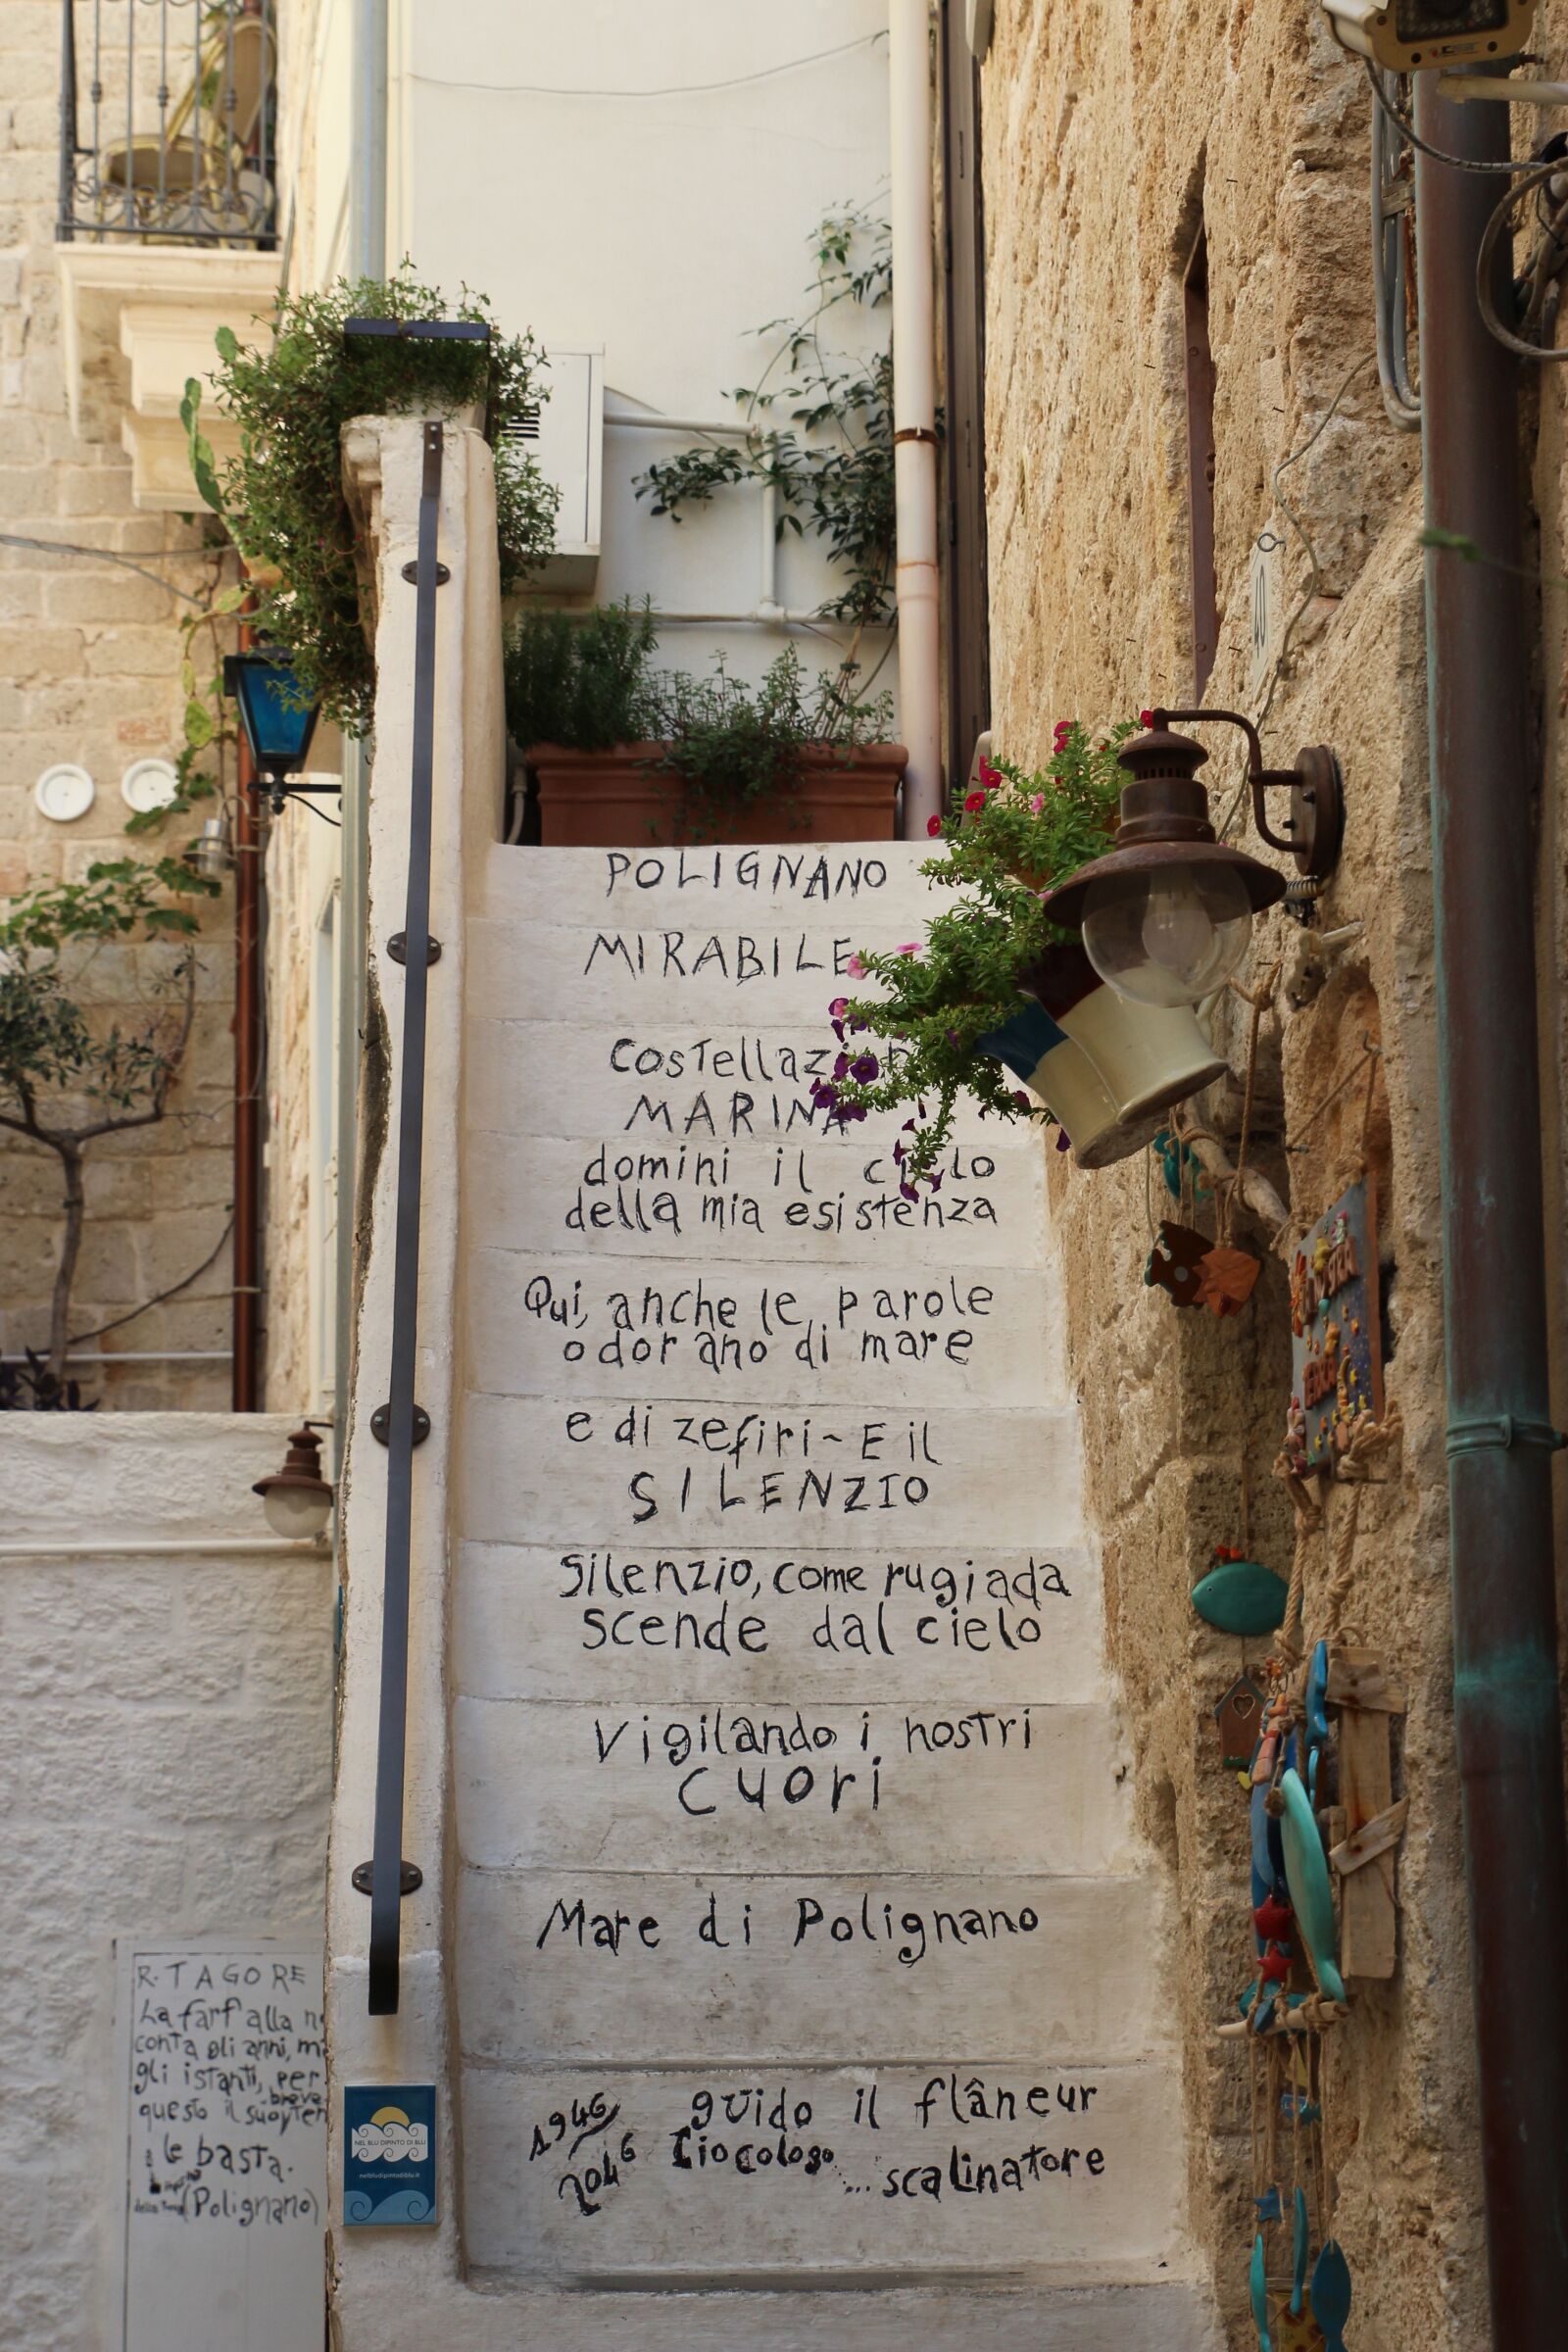 POLIGNANO
MIRABILE
costellazion
MARINA
domini il cielo
della mia esistenza
Qui, anche le parole
odorano di mare
e di zefiri - E il
SILENZIO
Silenzio, come rugiada
scende dal cielo
Vigilando i nostri
cuori
Mare di Polignano
1946
2046
guido il flâneur
...scalinatore
R. TAGORE
La farfalla
conta gli anni,
gli istanti, per
questo il suo
breve
le basta.
(Polignano)
NEL BLU DIPINTO DI BLU
nelbludipintodiblu.it
40